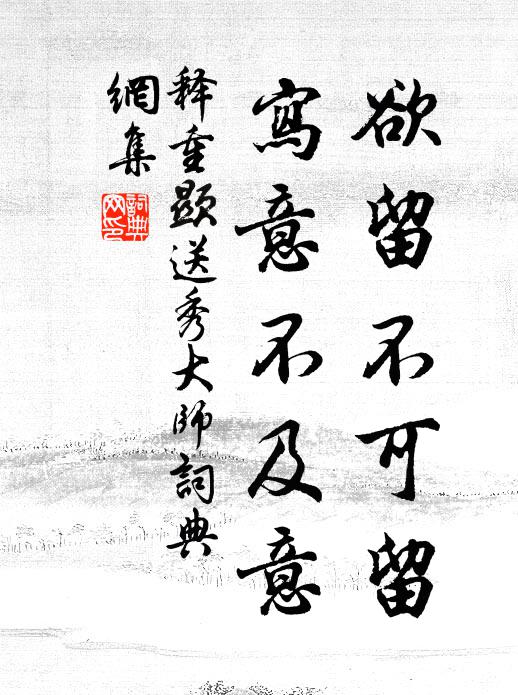 欲留不可留
寫意不及意
释重顯送秀大師詞典
網集
詞典
网印